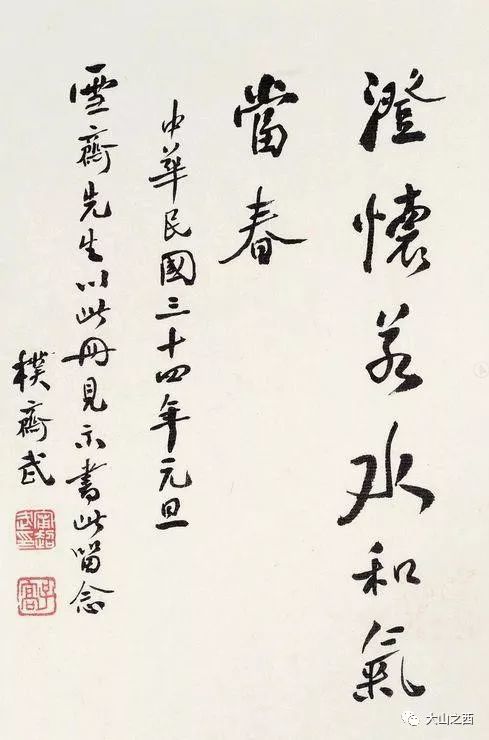 澄懷若水和氣
當春
中華民國三十四年元旦
雪齋先生以此冊見示書此留念
樸齋武
大山之西